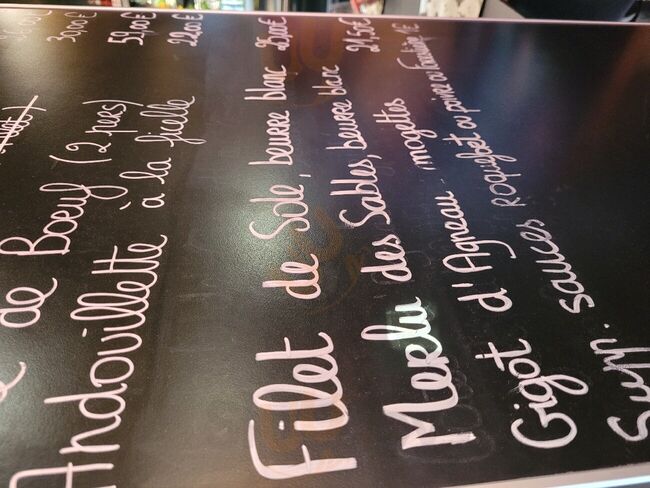 30,00€
de Boeuf (2 pers) 59,00€
Andouillette à la ficelle 22,00€
Filet de Sole, beurre blanc 25,00€
Merlu des Sables, beurre blanc 24,50€
Gigot d'Agneau mogettes
Supp. sauces roquefort ou poivre ou 1€